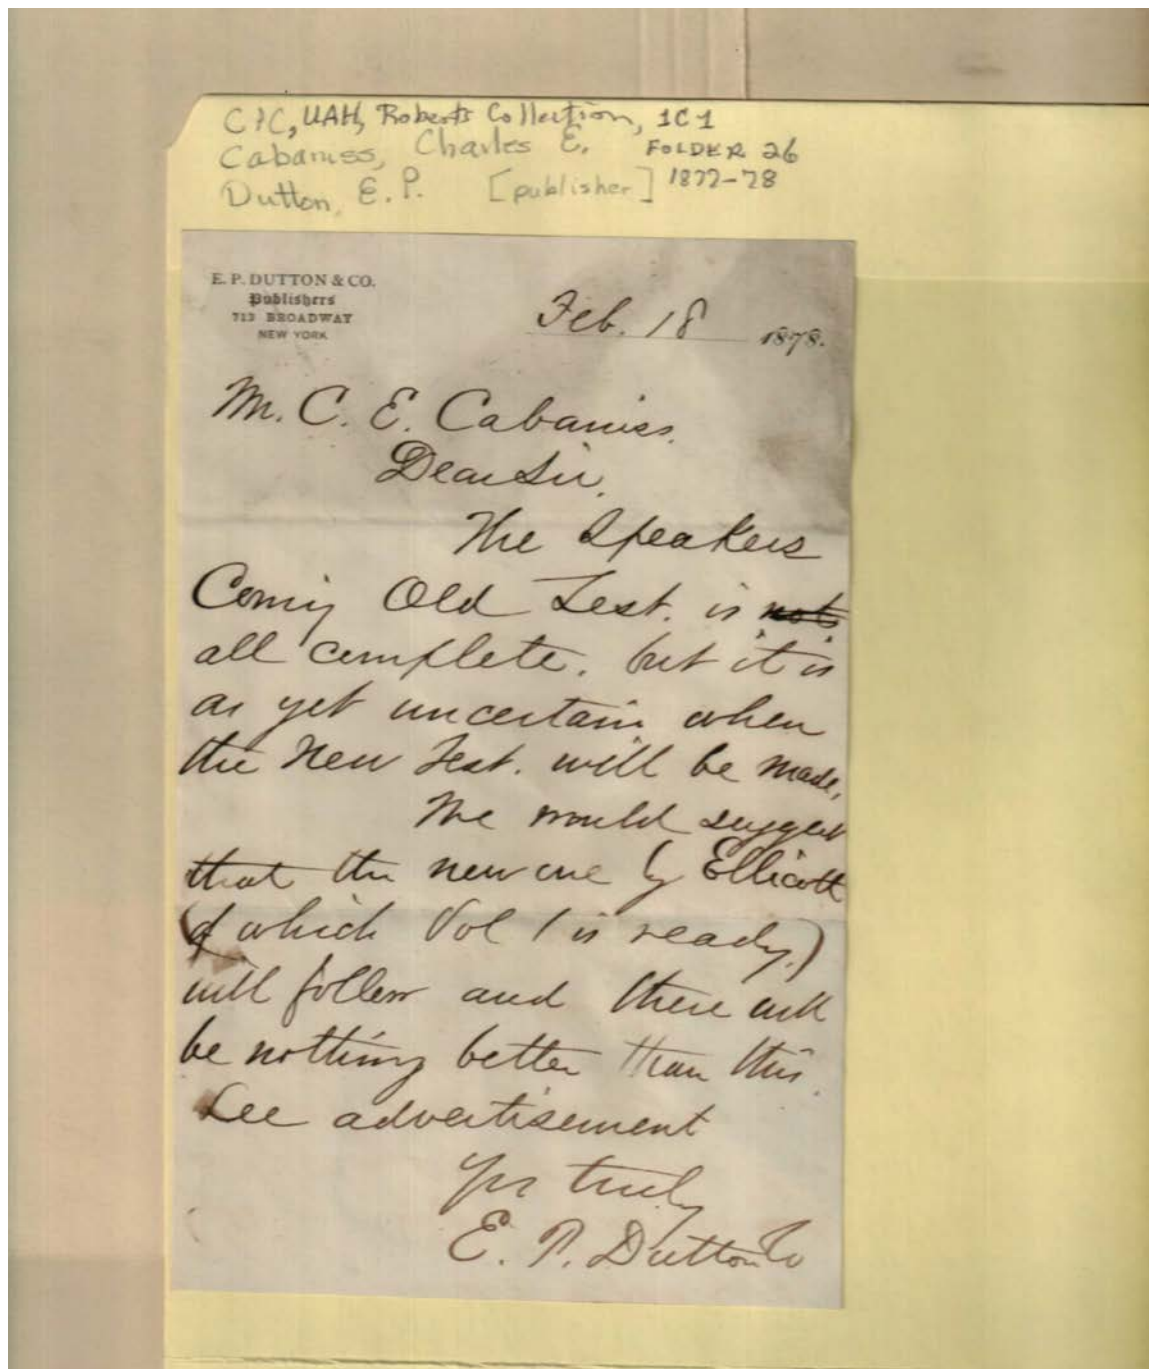 C+C, UAH, Roberts Collection, 1C1
Cabaniss, Charles E. FOLDER 26
Dutton, E. P. [publisher] 1877-78
E. P. DUTTON & CO.
Publishers
713 BROADWAY
NEW YORK
Feb. 18 1878.
Mr. C. E. Cabaniss.
Dear Sir.
The Speakers
Comy Old Test. is not
all complete. but it is
as yet uncertain when
the New Test. will be made.
We would suggest
that the new one by Ellicott
(of which Vol 1 is ready.)
will follow and there will
be nothing better than this.
See advertisement
Yrs truly
E. P. Dutton Co